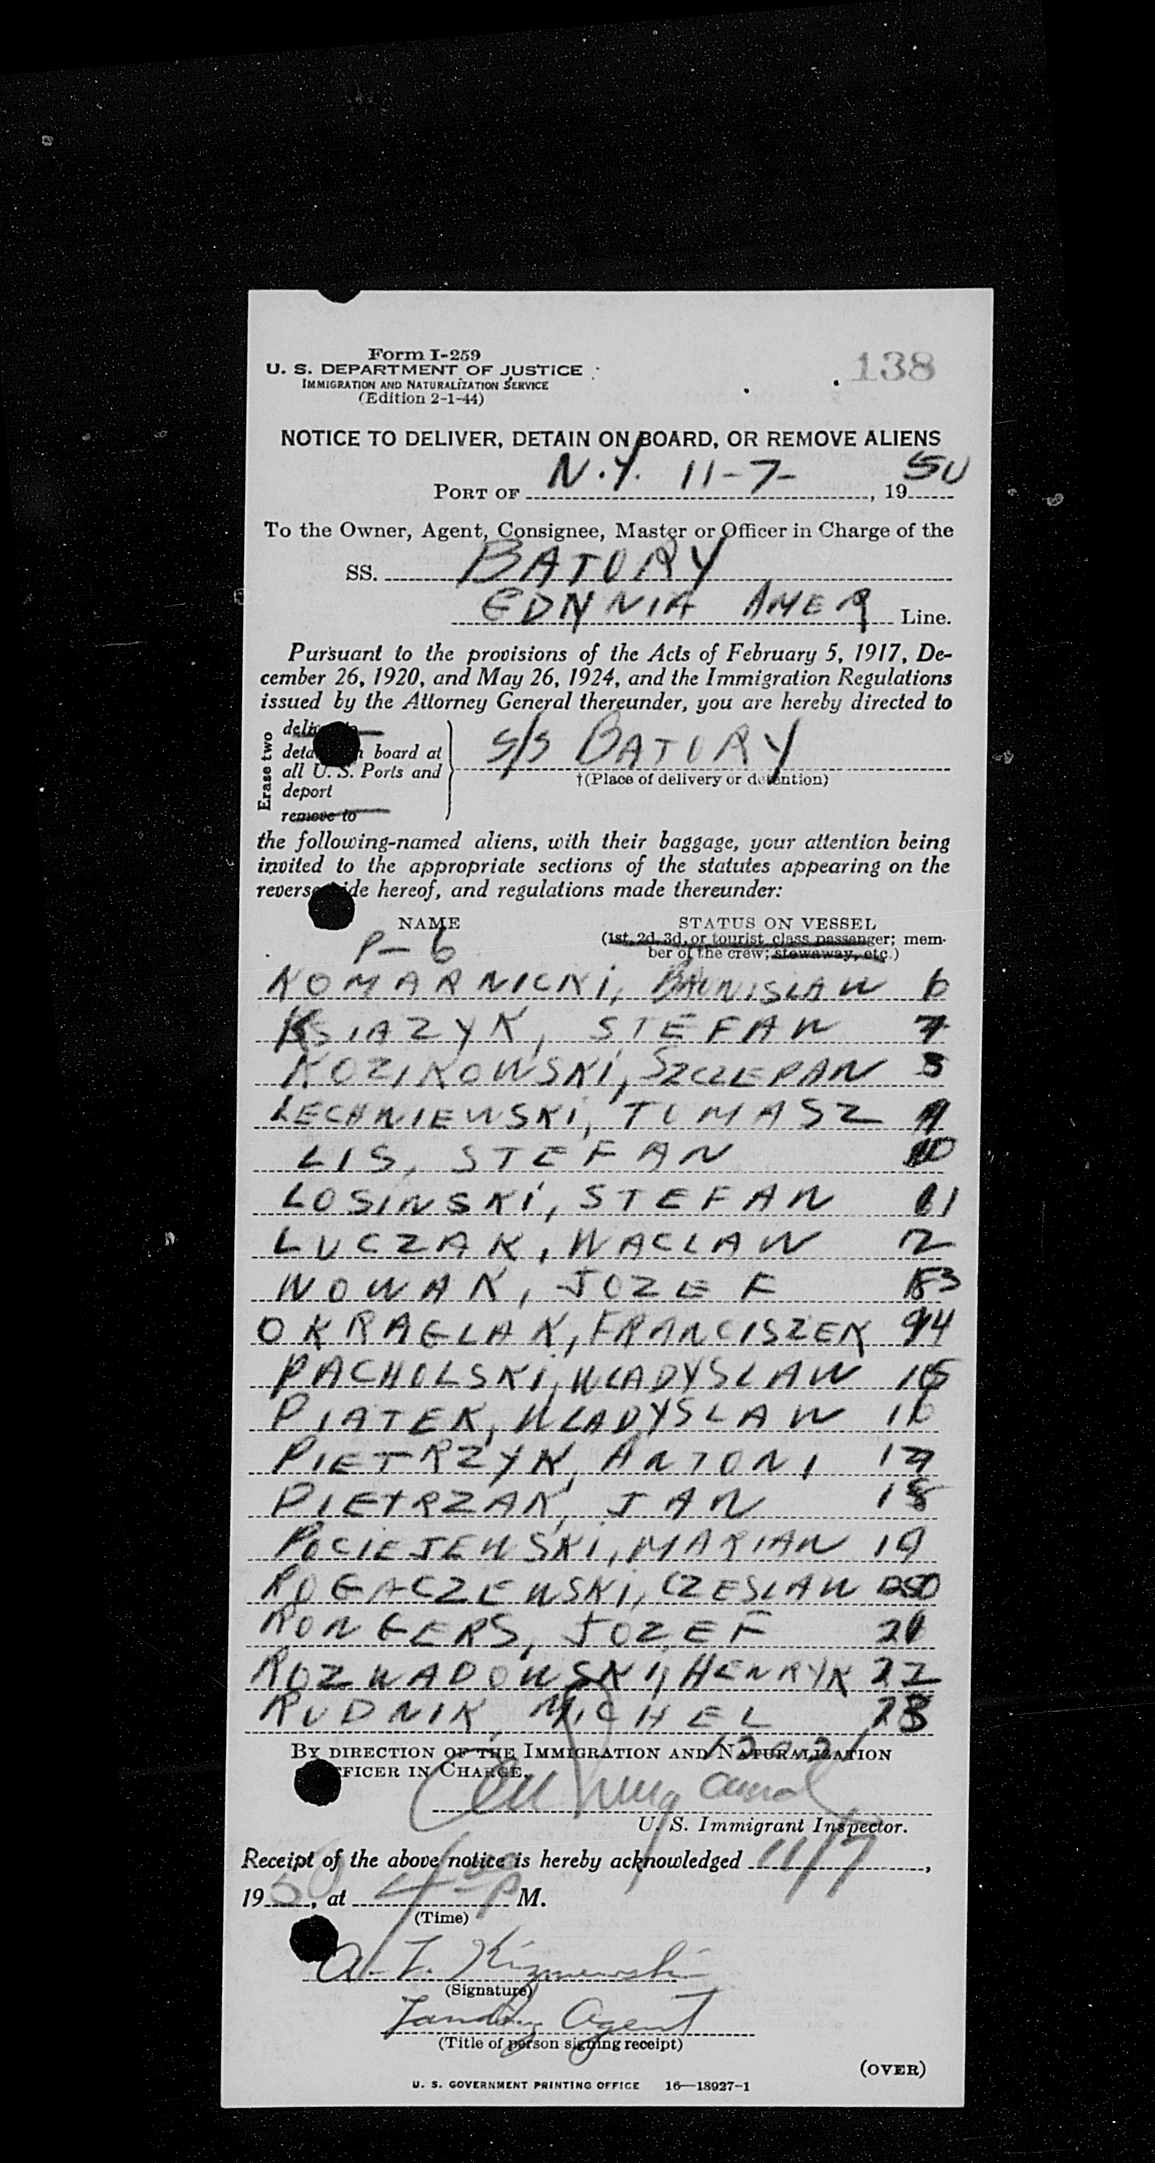 Form I-259
U. S. DEPARTMENT OF JUSTICE
IMMIGRATION AND NATURALIZATION SERVICE
(Edition 2-1-44)
138
NOTICE TO DELIVER, DETAIN ON BOARD, OR REMOVE ALIENS
PORT OF N.Y. 11-7-, 1950
To the Owner, Agent, Consignee, Master or Officer in Charge of the
SS. BATORY
GDYNIA AMER Line.
Pursuant to the provisions of the Acts of February 5, 1917, De-
cember 26, 1920, and May 26, 1924, and the Immigration Regulations
issued by the Attorney General thereunder, you are hereby directed to
Erase two
deliver to
detain on board at
all U. S. Ports and
deport
remove to
S/S BATORY
†(Place of delivery or detention)
the following-named aliens, with their baggage, your attention being
invited to the appropriate sections of the statutes appearing on the
reverse side hereof, and regulations made thereunder:
NAME
STATUS ON VESSEL
P-6
(1st, 2d, 3d, or tourist class passenger; mem-
ber of the crew; stowaway, etc.)
KOMARNICKI, BRONISLAW 6
KSIAZYK, STEFAN 7
KOZIKOWSKI, SZCZEPAN 8
LECHNIEWSKI, TOMASZ 9
LIS, STEFAN 10
LOSINSKI, STEFAN 11
LUCZAK, WACLAW 12
NOWAK, JOZEF 13
OKRAGLAK, FRANCISZEK 14
PACHOLSKI, WLADYSLAW 15
PIATEK, WLADYSLAW 16
PIETRZYK, ANTONI 17
PIETRZAK, JAN 18
POCIEJEWSKI, MARIAN 19
ROGACZEWSKI, CZESLAW 20
RONGERS, JOZEF 21
ROZWADOWSKI, HENRYK 22
RUDNIK, MICHEL 23
BY DIRECTION OF THE IMMIGRATION AND NATURALIZATION
OFFICER IN CHARGE.
U. S. Immigrant Inspector.
Receipt of the above notice is hereby acknowledged 11/7,
1950, at 4 00 P M.
(Time)
(Signature)
Landing Agent
(Title of person signing receipt)
(OVER)
U. S. GOVERNMENT PRINTING OFFICE 16—18927-1